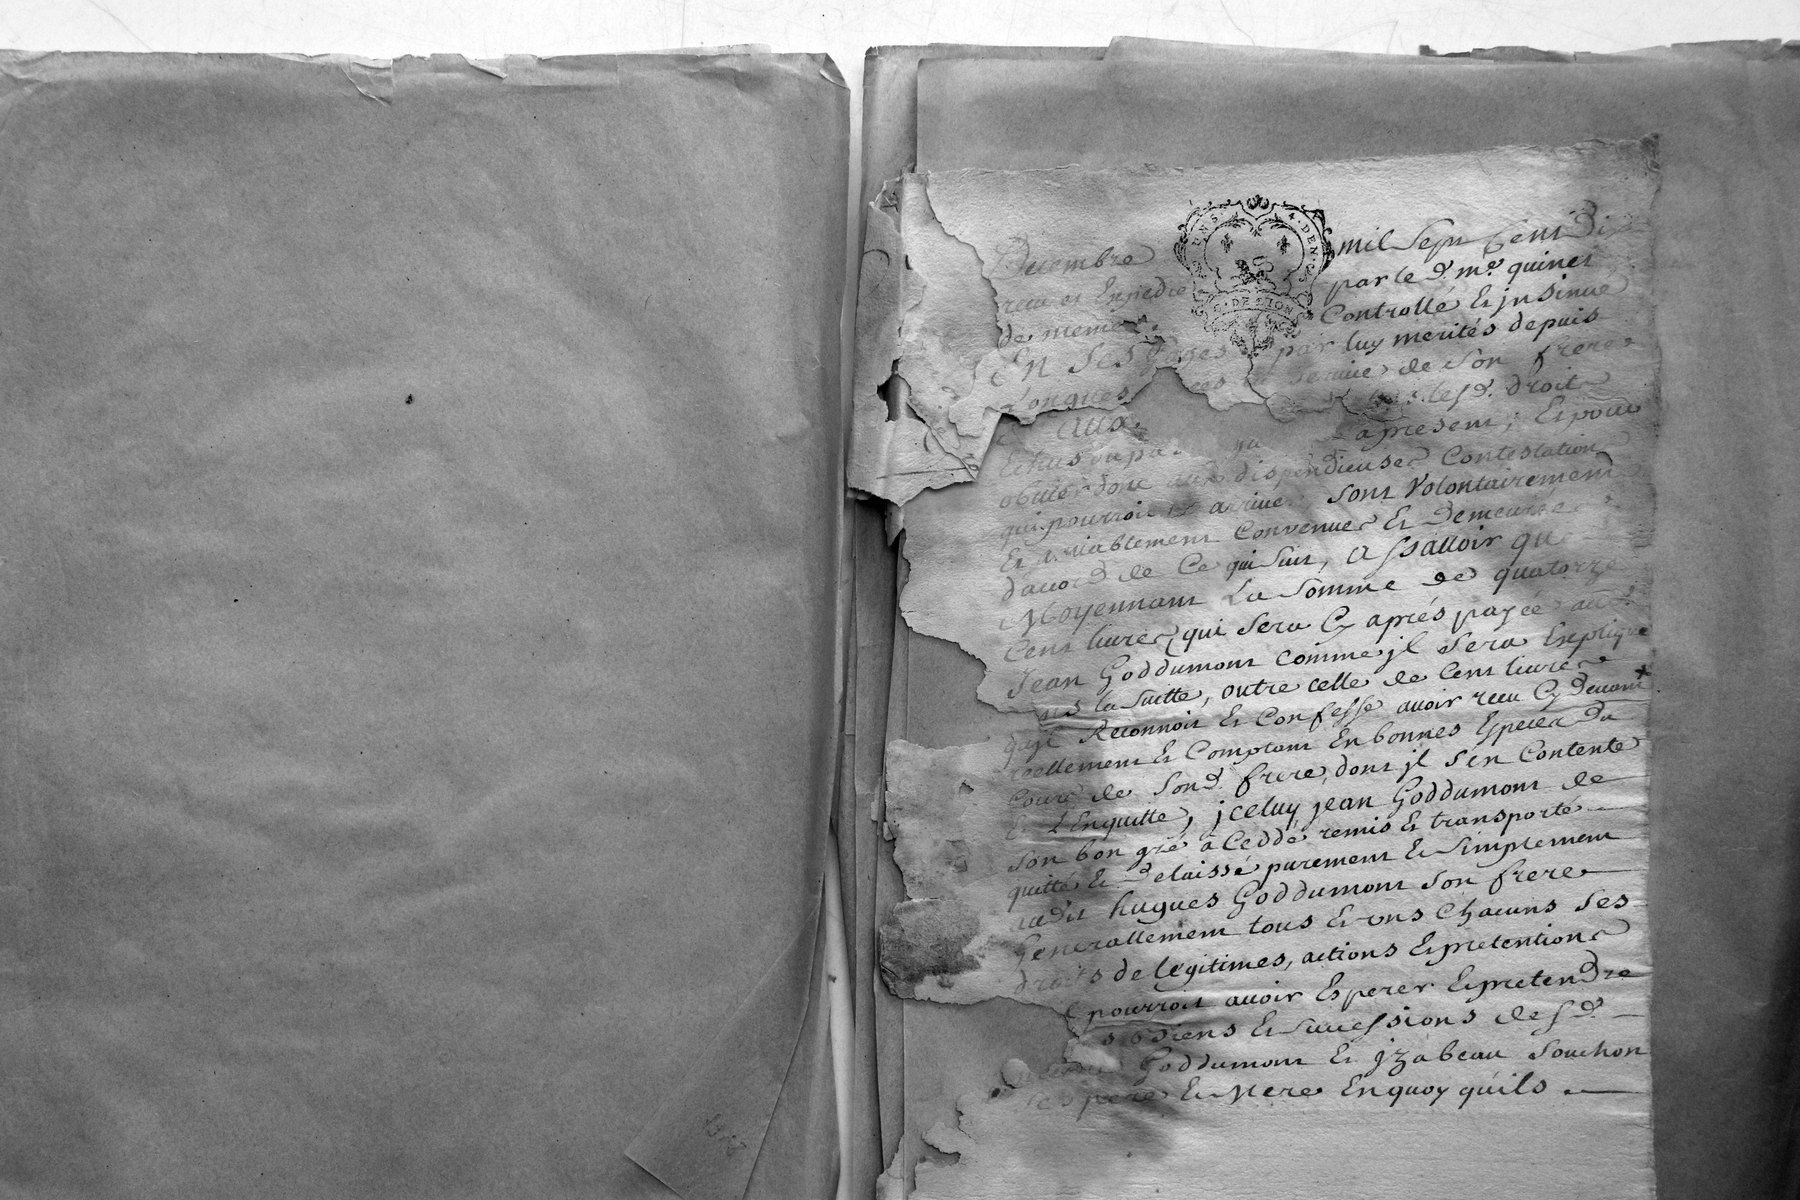 Decembre mil sept Cent Di
receu et Expedié par le d. me. quinet
de meme. Controllé Et jnsinué
En ses gages par luy merités depuis
Longues service de son frere
Caux. lesd. droits
Echus a present, Et pour
obvier donc aux dispendieuses Contestations
qui pourroit arriver sont Volontairement
Et amiablement Convenues Et Demeurées
d'acord de Ce qui suit, assavoir que
Moyennant La somme de quatorze
Cent livres qui sera Cy aprés payée au
Jean Goddumont comme jl sera Expliqué
la suitte, outre celle de Cent livres
qu'jl Reconnoit Et Confesse avoir receu Cy Devant
reellement Et Comptant En bonnes Especes Du
Cours de sond. frere, dont jl s'en Contente
Et L'Enquitte, jceluy jean Goddumont de
son bon gré a Ceddé remis Et transporté
quitté Et Delaissé purement Et simplement
audit hugues Goddumont son frere
Generallement tous Et uns Chacuns ses
droits de legitimes, actions Et pretentions
pourroit avoir Esperer Et pretendre
biens Et successions desd.
Goddumont Et jzabeau souchon
pere Et Mere En quoy qu'ils
ENS. 4. DEN.
G. DE LION